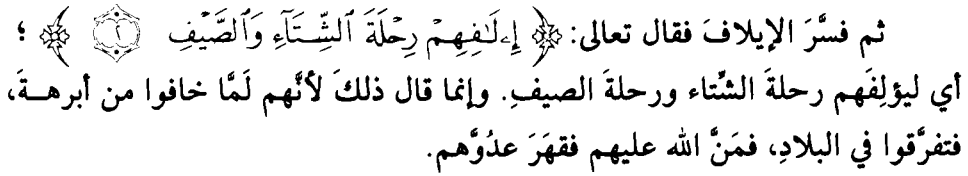 ثم فسَّرَ الإيلافَ فقال تعالى: ﴿ إِۦلَٰفِهِمْ رِحْلَةَ ٱلشِّتَآءِ وَٱلصَّيْفِ ۝٢ ﴾ ؛
أي ليؤلِفَهم رحلةَ الشِّتاء ورحلةَ الصيفِ. وإنما قال ذلكَ لأنَّهم لَمَّا خافوا من أبرهـةَ،
فتفرَّقوا في البلادِ، فمَنَّ الله عليهم فقهَرَ عدُوَّهم.